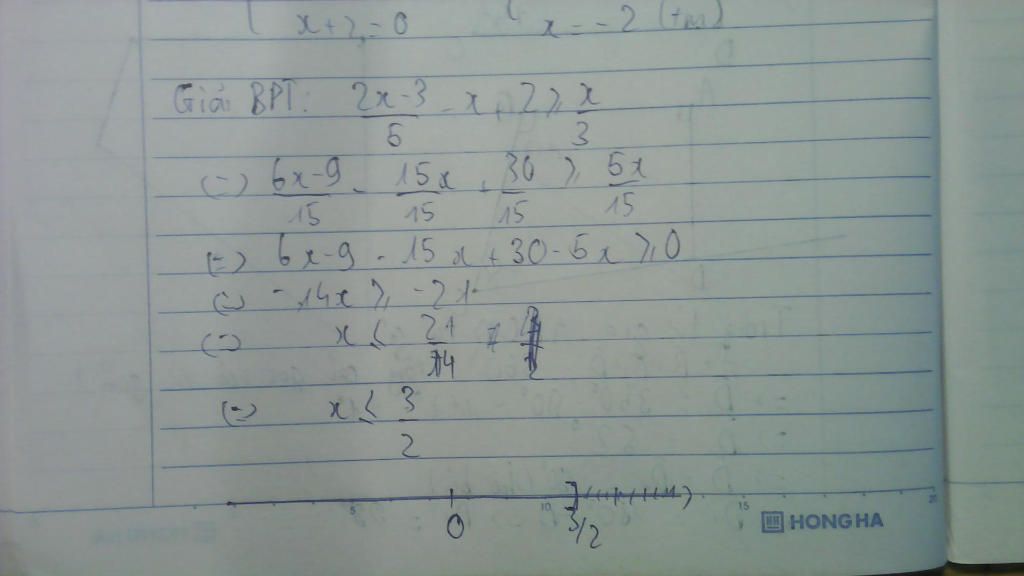 x+2=0 x=-2 (tm)
Giải BPT: 2x-3/5 - x + 2 ≥ x/3
(=) 6x-9/15 - 15x/15 + 30/15 ≥ 5x/15
(=) 6x-9 - 15x+30-5x ≥ 0
(=) -14x ≥ -21
(=) x ≤ 21/14
(=) x ≤ 3/2
0 3/2
5 10 15 20
HONG HA